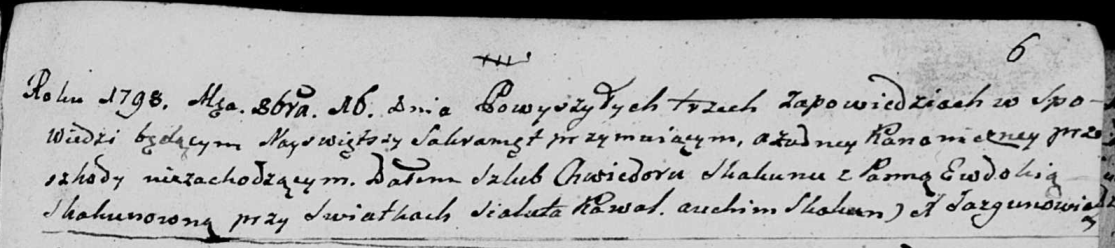 6
Roku 1798. Mca. 8bra. 16. Dnia Powyszyłych trzech Zapowiedziach w Spo-
wiedzi będącym Nayswiętszy Sakramęt przymuiącym, a żudney Kanoniczney prze
szkody niezachodzącym. Dałem Szlub Chwiedoru Skakunu z Panną Ewdokią
Skakunowną przy Swiatkach Kawał. Skakun) X Jazgunowicz